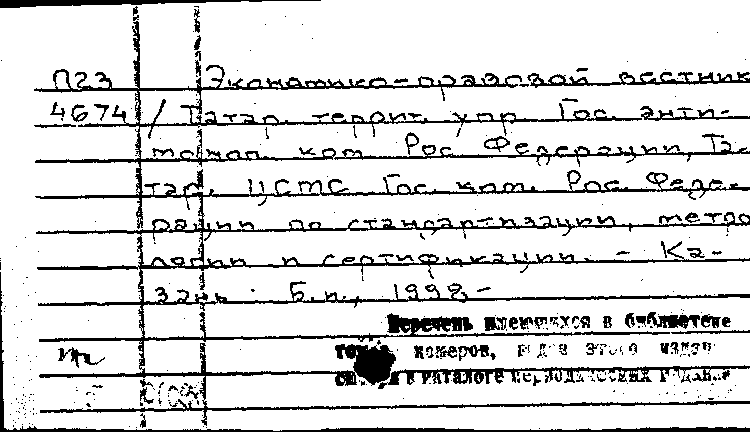 П23 Экономико-правовой вестник
4674 / Татар. террит. упр. Гос. анти-
моноп. ком. Рос. Федерации, Та-
тар. ЦСМС Гос. ком. Рос. Феде-
рации по стандартизации, метро
логии и сертификации. - Ка-
зань : Б.и., 1998,-
Перечень имеющихся в библиотеке
номеров, этого
в каталоге периодических